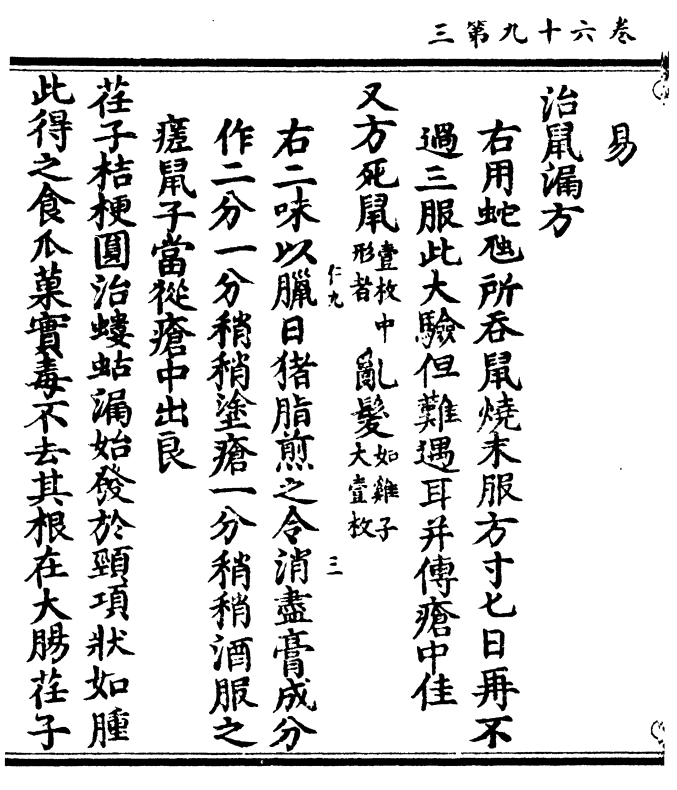 三第九十六卷
易
治鼠漏方
右用蛇虺所吞鼠燒末服方寸匕日再不
過三服此大驗但難遇耳并傅瘡中佳
又方死鼠壹枚中形者亂髮如雞子大壹枚
右二味以臘日猪脂煎之令消盡膏成分
作二分一分稍稍塗瘡一分稍稍酒服之
瘥鼠子當從瘡中出良
荏子桔梗圓治螻蛄漏始發於頸項狀如腫
此得之食瓜菓實毒不去其根在大腸荏子
仁九
三